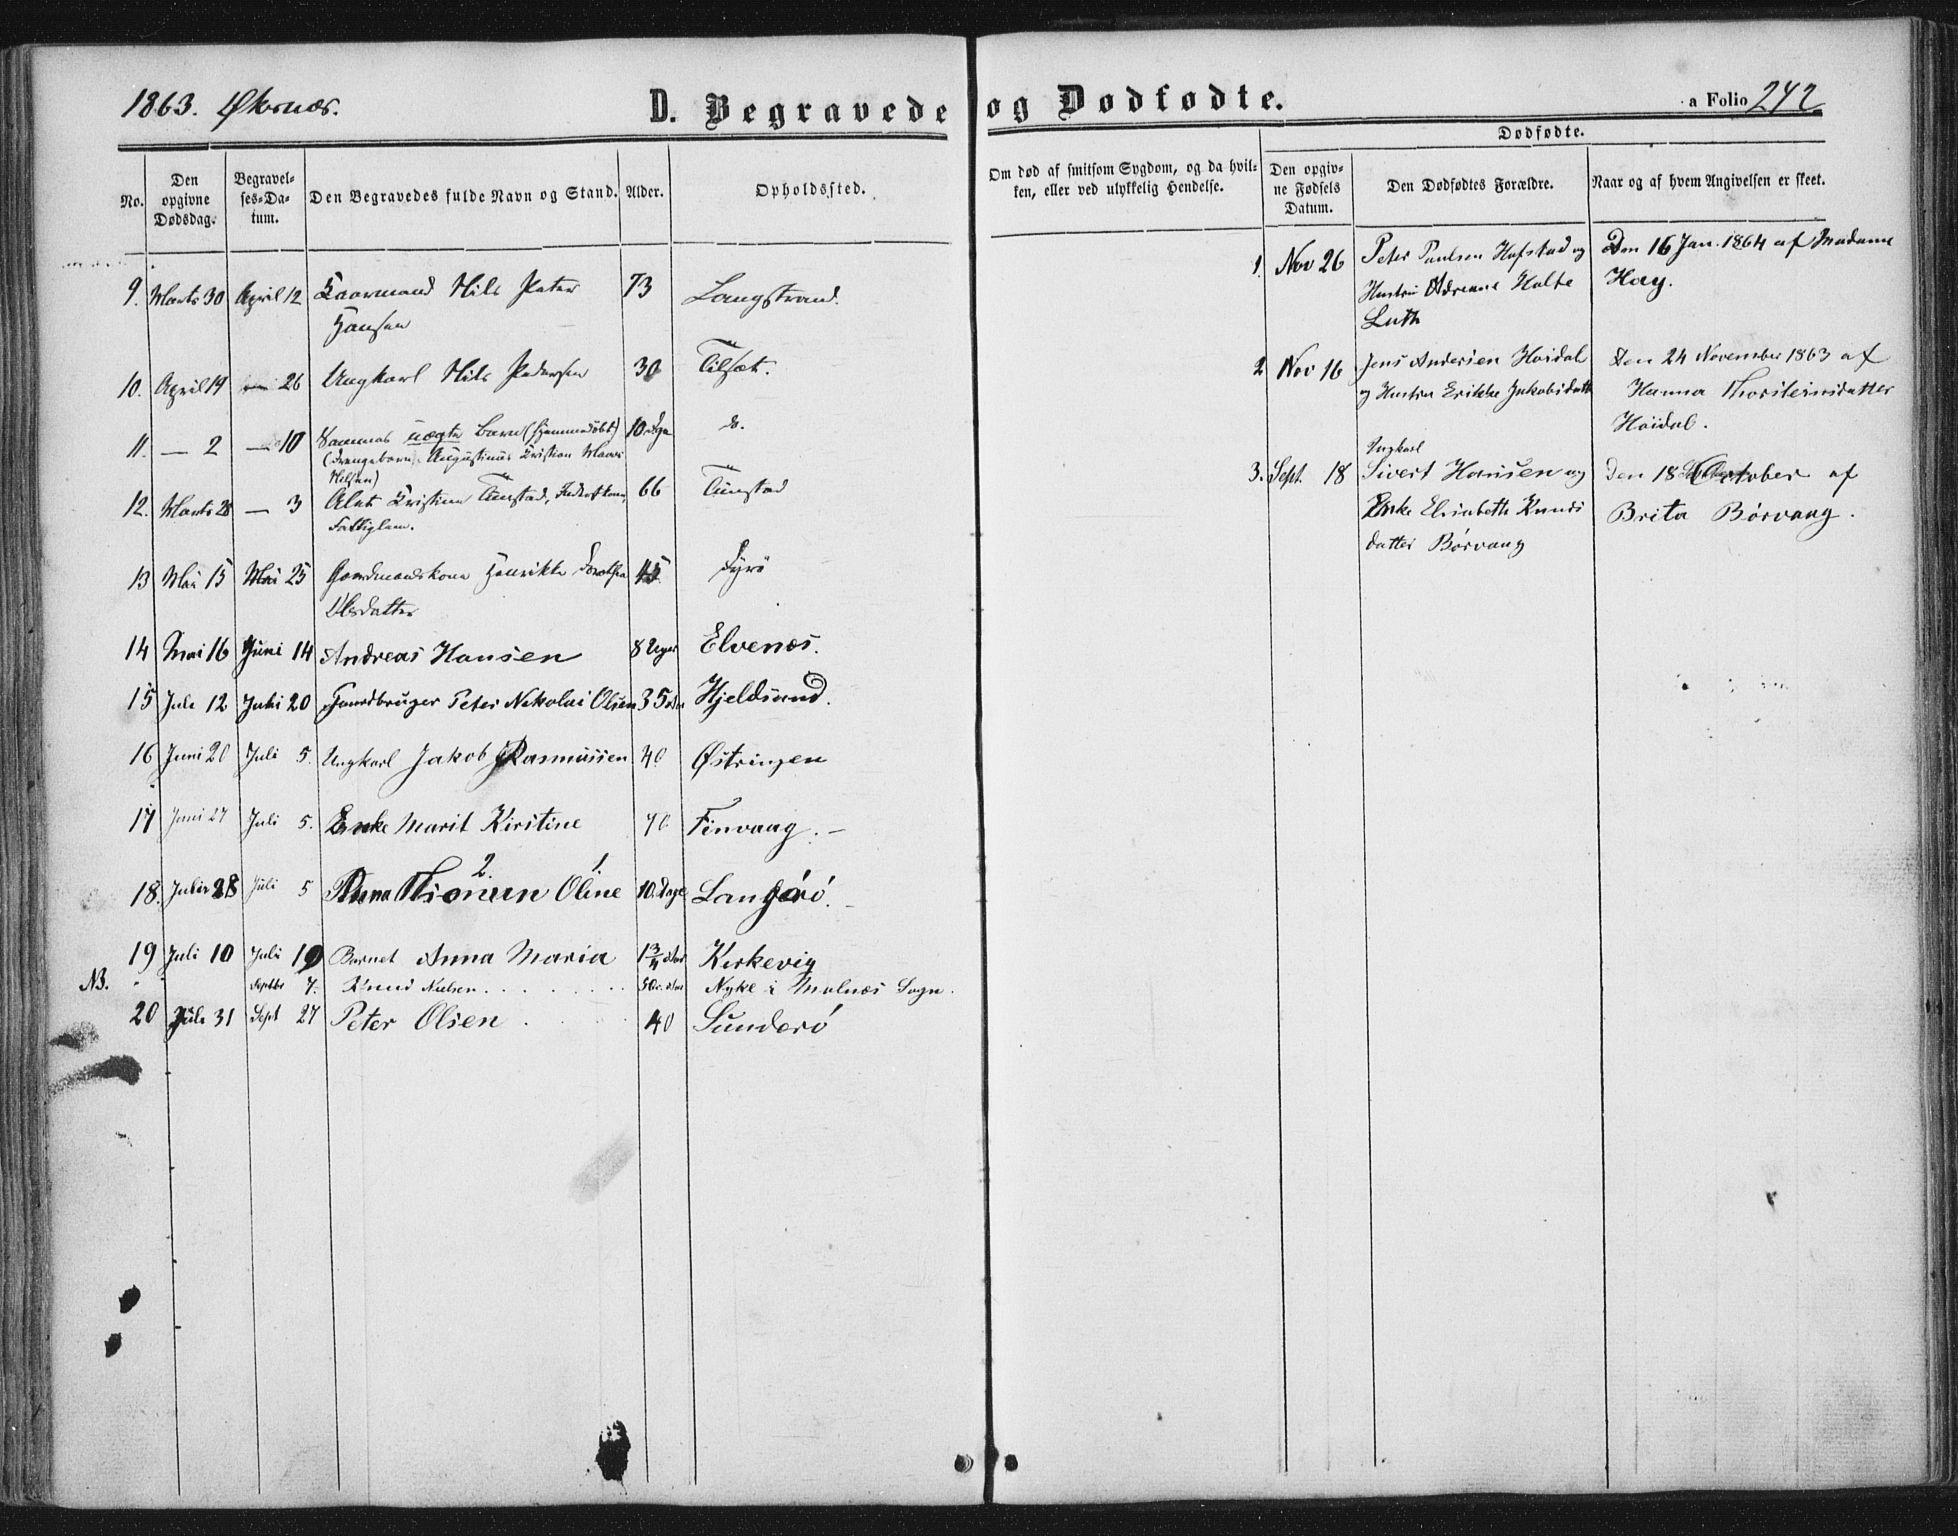 1863. Øksnæs.
D. Begravede og Dødfødte.
a Folio 242
Dødfødte.
No.
Den opgivne Dødsdag.
Begravelses-Datum.
Den Begravedes fulde Navn og Stand.
Alder.
Opholdssted.
Om død af smitsom Sygdom, og da hvilken, eller ved ulykkelig Hendelse.
Den opgivne Fødsels Datum.
Den Dødfødtes Forældre.
Naar og af hvem Angivelsen er skeet.
9. Marts 30 April 12 Kaarmand Nils Peter 73 Langstrand.
Hansen
10. April 19 — 26 Ungkarl Nils Pedersen 30 Tilsæt.
11. — 2 — 10 Sammes uægte Barn (hjemmedøbt) 10 Dge do.
(Drengebarn. Augustinus Kristian
Nilsen)
12. Marts 28 — 3 Kristina Tunstad, 66 Tunstad
Fattiglem.
13 Mai 15 Mai 25 Gaardmandskone Henrikka Dorothea 45 Dyrö
Olsdatter
14 Mai 16 Juni 14 Andreas Hansen 8 Uger Elvenæs.
15 Juli 12 Juli 20 Gaardbruger Peter Nikolai Olsen 35 Hjeldsand.
16 Juni 20 Juli 5. Ungkarl Jakob Rasmussen 40 Østringen
17 Juni 27 Juli 5. Enke Marit Kirstine 70. Finvaag. —
2. 1.
18. 28 Juli 5 Anna Thomin Oline 10. Dage Langørö. —
19 Juli 10 Juli 19 Barnet Anna Maria 1 3/4 Aar Kirkevig
NB. Septbr 7. Knud Nielsen . . . . . . . . Nyke i Malnæs Sogn.
20 Juli 31 Sept 27 Peter Olsen . . . . . 40 Sunderö
1. Nov 26 Peter Paulsen Hofstad og Den 16 Jan. 1864 af Madame
Hustru Adreane Holte Hay.
Luth
2 Nov 16 Jens Andersen Hoidal Den 24 November 1863 af
og Hustru Erikke Jakobsdatt Hanna Thorsteinsdatter
Höidal.
Ungkarl
3. Sept. 18 Sivert Hansen og Den 18 October af
Enke Elisabeth Knuds Brita Börvaag.
datter Börvaag